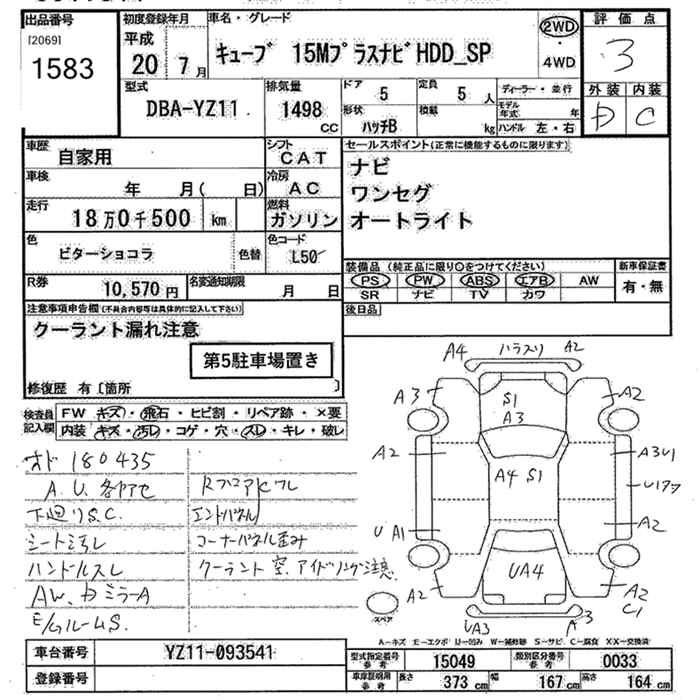 出品番号 [2069] 1583
初度登録年月 平成 20年 7月
車名・グレード キューブ 15MプラスナビHDD_SP
2WD・4WD
評価点 3
外装 D 内装 C
型式 DBA-YZ11
排気量 1498 CC
ドア 5
定員 5 人
形状 ハッチB
積載 kg
ディーラー・並行
モデル年式 年
ハンドル 左・右
車歴 自家用
シフト CAT
車検 年 月( 日)
冷房 AC
走行 18万0千500 km
燃料 ガソリン
色 ビターショコラ 色替
色コード L50
R券 10,570円
名変通知期限 月 日
セールスポイント(正常に機能するものに限ります)
ナビ
ワンセグ
オートライト
装備品 (純正品に限り○をつけてください)
PS PW ABS エアB AW
SR ナビ TV カワ
新車保証書 有・無
後日品
注意事項申告欄(不具合内容等は具体的に記入して下さい)
クーラント漏れ注意
第5駐車場置き
修復歴 有〔箇所 〕
検査員記入欄
FW キズ・飛石・ヒビ割・リペア跡・×要
内装 キズ・汚レ・コゲ・穴・スレ・キレ・破レ
オド 180435
A.U.各アセ
下廻りS.C.
シートヨゴレ
ハンドルスレ
AW、ドミラーA
E/GルームS.
Rフロア
エンドパネル
コーナーパネル歪み
クーラント空、アイドリング注意
A4 ハラスリ A2
A3 S1 A3 A2
A2 A4 S1 A3U1
U177
U A1 A2
UA4
A2 A2 C1
UA3 A3
スペア
A-キズ E-エクボ U-凹み W-補修跡 S-サビ C-腐食 XX-交換済
車台番号 YZ11-093541
登録番号
型式指定番号 参考 15049
類別区分番号 参考 0033
車庫証明用 参考 長さ 373 cm 幅 167 cm 高さ 164 cm